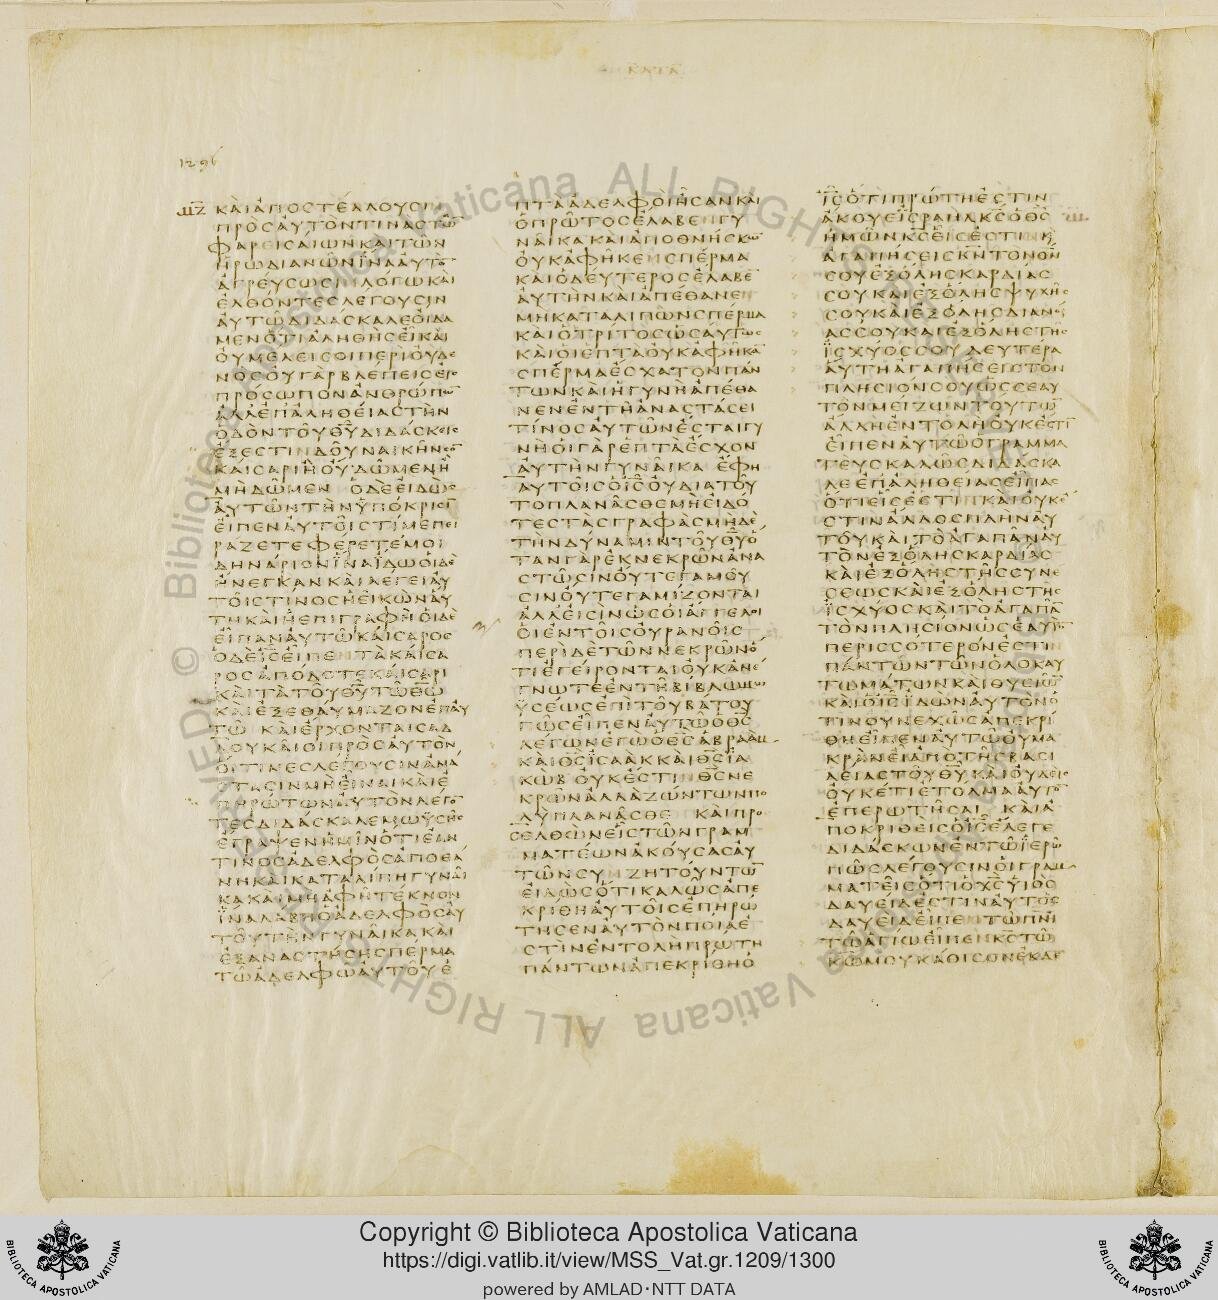 ΚΑΤΑ
1296
ΚΑΙΑΠΟΣΤΕΛΛΟΥΣΙΝ
ΠΡΟΣΑΥΤΟΝΤΙΝΑΣΤΩ̅
ΦΑΡΕΙΣΑΙΩΝΚΑΙΤΩΝ
ΗΡΩΔΙΑΝΩΝΙΝΑΑΥΤΟ̅
ΑΓΡΕΥΣΩΣΙΛΟΓΩΚΑΙ
ΕΛΘΟΝΤΕΣΛΕΓΟΥΣΙΝ
ΑΥΤΩΔΙΔΑΣΚΑΛΕΟΙΔΑ
ΜΕΝΟΤΙΑΛΗΘΗΣΕΙΚΑΙ
ΟΥΜΕΛΕΙΣΟΙΠΕΡΙΟΥΔΕ
ΝΟΣΟΥΓΑΡΒΛΕΠΕΙΣΕΙΣ
ΠΡΟΣΩΠΟΝΑΝΘΡΩΠΩ̅
ΑΛΛΕΠΑΛΗΘΕΙΑΣΤΗΝ
ΟΔΟΝΤΟΥΘΥ̅ΔΙΔΑΣΚΕΙΣ
ΕΞΕΣΤΙΝΔΟΥΝΑΙΚΗΝΣΟ̅
ΚΑΙΣΑΡΙΗΟΥΔΩΜΕΝΗ
ΜΗΔΩΜΕΝ ΟΔΕΕΙΔΩΣ
ΑΥΤΩΝΤΗΝΥΠΟΚΡΙΣΙ̅
ΕΙΠΕΝΑΥΤΟΙΣΤΙΜΕΠΕΙ
ΡΑΖΕΤΕΦΕΡΕΤΕΜΟΙ
ΔΗΝΑΡΙΟΝΙΝΑΙΔΩΟΙΔΕ
ΗΝΕΓΚΑΝΚΑΙΛΕΓΕΙΑΥ
ΤΟΙΣΤΙΝΟΣΗΕΙΚΩΝΑΥ
ΤΗΚΑΙΗΕΠΙΓΡΑΦΗΟΙΔΕ
ΕΙΠΑΝΑΥΤΩΚΑΙΣΑΡΟΣ
ΟΔΕΙΣ̅ΕΙΠΕΝΤΑΚΑΙΣΑ
ΡΟΣΑΠΟΔΟΤΕΚΑΙΣΑΡΙ
ΚΑΙΤΑΤΟΥΘΥ̅ΤΩΘΩ̅
ΚΑΙΕΞΕΘΑΥΜΑΖΟΝΕΠΑΥ
ΤΩ ΚΑΙΕΡΧΟΝΤΑΙΣΑΔ
ΔΟΥΚΑΙΟΙΠΡΟΣΑΥΤΟΝ
ΟΙΤΙΝΕΣΛΕΓΟΥΣΙΝΑΝΑ
ΣΤΑΣΙΝΜΗΕΙΝΑΙΚΑΙΕ
ΠΗΡΩΤΩΝΑΥΤΟΝΛΕΓΟ̅
ΤΕΣΔΙΔΑΣΚΑΛΕΜΩΥΣΗΣ
ΕΓΡΑΨΕΝΗΜΙΝΟΤΙΕΑΝ
ΤΙΝΟΣΑΔΕΛΦΟΣΑΠΟΘΑ
ΝΗΚΑΙΚΑΤΑΛΙΠΗΓΥΝΑΙ
ΚΑΚΑΙΜΗΑΦΗΤΕΚΝΟΝ
ΙΝΑΛΑΒΗΟΑΔΕΛΦΟΣΑΥ
ΤΟΥΤΗΝΓΥΝΑΙΚΑΚΑΙ
ΕΞΑΝΑΣΤΗΣΗΣΠΕΡΜΑ
ΤΩΑΔΕΛΦΩΑΥΤΟΥΕ
ΠΤΑΑΔΕΛΦΟΙΗΣΑΝΚΑΙ
ΟΠΡΩΤΟΣΕΛΑΒΕΝΓΥ
ΝΑΙΚΑΚΑΙΑΠΟΘΝΗΣΚΩ̅
ΟΥΚΑΦΗΚΕΝΣΠΕΡΜΑ
ΚΑΙΟΔΕΥΤΕΡΟΣΕΛΑΒΕ̅
ΑΥΤΗΝΚΑΙΑΠΕΘΑΝΕΝ
ΜΗΚΑΤΑΛΙΠΩΝΣΠΕΡΜΑ
ΚΑΙΟΤΡΙΤΟΣΩΣΑΥΤΩΣ
ΚΑΙΟΙΕΠΤΑΟΥΚΑΦΗΚΑ̅
ΣΠΕΡΜΑΕΣΧΑΤΟΝΠΑΝ
ΤΩΝΚΑΙΗΓΥΝΗΑΠΕΘΑ
ΝΕΝΕΝΤΗΑΝΑΣΤΑΣΕΙ
ΤΙΝΟΣΑΥΤΩΝΕΣΤΑΙΓΥ
ΝΗΟΙΓΑΡΕΠΤΑΕΣΧΟΝ
ΑΥΤΗΝΓΥΝΑΙΚΑ ΕΦΗ
ΑΥΤΟΙΣΟΙΣ̅ΟΥΔΙΑΤΟΥ
ΤΟΠΛΑΝΑΣΘΕΜΗΕΙΔΟ
ΤΕΣΤΑΣΓΡΑΦΑΣΜΗΔΕ
ΤΗΝΔΥΝΑΜΙΝΤΟΥΘΥ̅Ο
ΤΑΝΓΑΡΕΚΝΕΚΡΩΝΑΝΑ
ΣΤΩΣΙΝΟΥΤΕΓΑΜΟΥ
ΣΙΝΟΥΤΕΓΑΜΙΖΟΝΤΑΙ
ΑΛΛΕΙΣΙΝΩΣΟΙΑΓΓΕΛΟΙ
ΟΙΕΝΤΟΙΣΟΥΡΑΝΟΙΣ
ΠΕΡΙΔΕΤΩΝΝΕΚΡΩΝΟ
ΤΙΕΓΕΙΡΟΝΤΑΙΟΥΚΑΝΕ
ΓΝΩΤΕΕΝΤΗΒΙΒΛΩΜΩ
ΥΣΕΩΣΕΠΙΤΟΥΒΑΤΟΥ
ΠΩΣΕΙΠΕΝΑΥΤΩΟΘΣ̅
ΛΕΓΩΝΕΓΩΟΘΣ̅ΑΒΡΑΑΜ
ΚΑΙΘΣ̅ΙΣΑΑΚΚΑΙΘΣ̅ΙΑ
ΚΩΒΟΥΚΕΣΤΙΝΘΣ̅ΝΕ
ΚΡΩΝΑΛΛΑΖΩΝΤΩΝΠΟ
ΛΥΠΛΑΝΑΣΘΕ ΚΑΙΠΡΟ
ΣΕΛΘΩΝΕΙΣΤΩΝΓΡΑΜ
ΜΑΤΕΩΝΑΚΟΥΣΑΣΑΥ
ΤΩΝΣΥΝΖΗΤΟΥΝΤΩ̅
ΕΙΔΩΣΟΤΙΚΑΛΩΣΑΠΕ
ΚΡΙΘΗΑΥΤΟΙΣΕΠΗΡΩ
ΤΗΣΕΝΑΥΤΟΝΠΟΙΑΕ
ΣΤΙΝΕΝΤΟΛΗΠΡΩΤΗ
ΠΑΝΤΩΝΑΠΕΚΡΙΘΗΟ
ΙΣ̅ΟΤΙΠΡΩΤΗΕΣΤΙΝ
ΑΚΟΥΕΙΣΡΑΗΛΚΣ̅ΟΘΣ̅
ΗΜΩΝΚΣ̅ΕΙΣΕΣΤΙΝΚ̅
ΑΓΑΠΗΣΕΙΣΚΝ̅ΤΟΝΘΝ̅
ΣΟΥΕΞΟΛΗΣΚΑΡΔΙΑΣ
ΣΟΥΚΑΙΕΞΟΛΗΣΨΥΧΗΣ
ΣΟΥΚΑΙΕΞΟΛΗΣΔΙΑΝΟΙ
ΑΣΣΟΥΚΑΙΕΞΟΛΗΣΤΗΣ
ΙΣΧΥΟΣΣΟΥΔΕΥΤΕΡΑ
ΑΥΤΗΑΓΑΠΗΣΕΙΣΤΟΝ
ΠΛΗΣΙΟΝΣΟΥΩΣΣΕΑΥ
ΤΟΝΜΕΙΖΩΝΤΟΥΤΩ̅
ΑΛΛΗΕΝΤΟΛΗΟΥΚΕΣΤΙ̅
ΕΙΠΕΝΑΥΤΩΟΓΡΑΜΜΑ
ΤΕΥΣΚΑΛΩΣΔΙΔΑΣΚΑ
ΛΕΕΠΑΛΗΘΕΙΑΣΕΙΠΑΣ
ΟΤΙΕΙΣΕΣΤΙΝΚΑΙΟΥΚΕ
ΣΤΙΝΑΛΛΟΣΠΛΗΝΑΥ
ΤΟΥΚΑΙΤΟΑΓΑΠΑΝΑΥ
ΤΟΝΕΞΟΛΗΣΚΑΡΔΙΑΣ
ΚΑΙΕΞΟΛΗΣΤΗΣΣΥΝΕ
ΣΕΩΣΚΑΙΕΞΟΛΗΣΤΗΣ
ΙΣΧΥΟΣΚΑΙΤΟΑΓΑΠΑ̅
ΤΟΝΠΛΗΣΙΟΝΩΣΕΑΥΤΟ̅
ΠΕΡΙΣΣΟΤΕΡΟΝΕΣΤΙΝ
ΠΑΝΤΩΝΤΩΝΟΛΟΚΑΥ
ΤΩΜΑΤΩΝΚΑΙΘΥΣΙΩ̅
ΚΑΙΟΙΣ̅ΙΔΩΝΑΥΤΟΝΟ
ΤΙΝΟΥΝΕΧΩΣΑΠΕΚΡΙ
ΘΗΕΙΠΕΝΑΥΤΩΟΥΜΑ
ΚΡΑΝΕΙΑΠΟΤΗΣΒΑΣΙ
ΛΕΙΑΣΤΟΥΘΥ̅ ΚΑΙΟΥΔΕΙΣ
ΟΥΚΕΤΙΕΤΟΛΜΑΑΥΤΟ̅
ΕΠΕΡΩΤΗΣΑΙ ΚΑΙΑ
ΠΟΚΡΙΘΕΙΣΟΙΣ̅ΕΛΕΓΕ
ΔΙΔΑΣΚΩΝΕΝΤΩΙΕΡΩ
ΠΩΣΛΕΓΟΥΣΙΝΟΙΓΡΑΜ
ΜΑΤΕΙΣΟΤΙΟΧΣ̅ΥΙΟΣ
ΔΑΥΕΙΔΕΣΤΙΝΑΥΤΟΣ
ΔΑΥΕΙΔΕΙΠΕΝΤΩΠΝΙ̅
ΤΩΑΓΙΩΕΙΠΕΝΚΣ̅ΤΩ
ΚΩ̅ΜΟΥΚΑΘΙΣΟΝΕΚΔΕ
Copyright © Biblioteca Apostolica Vaticana
https://digi.vatlib.it/view/MSS_Vat.gr.1209/1300
powered by AMLAD·NTT DATA